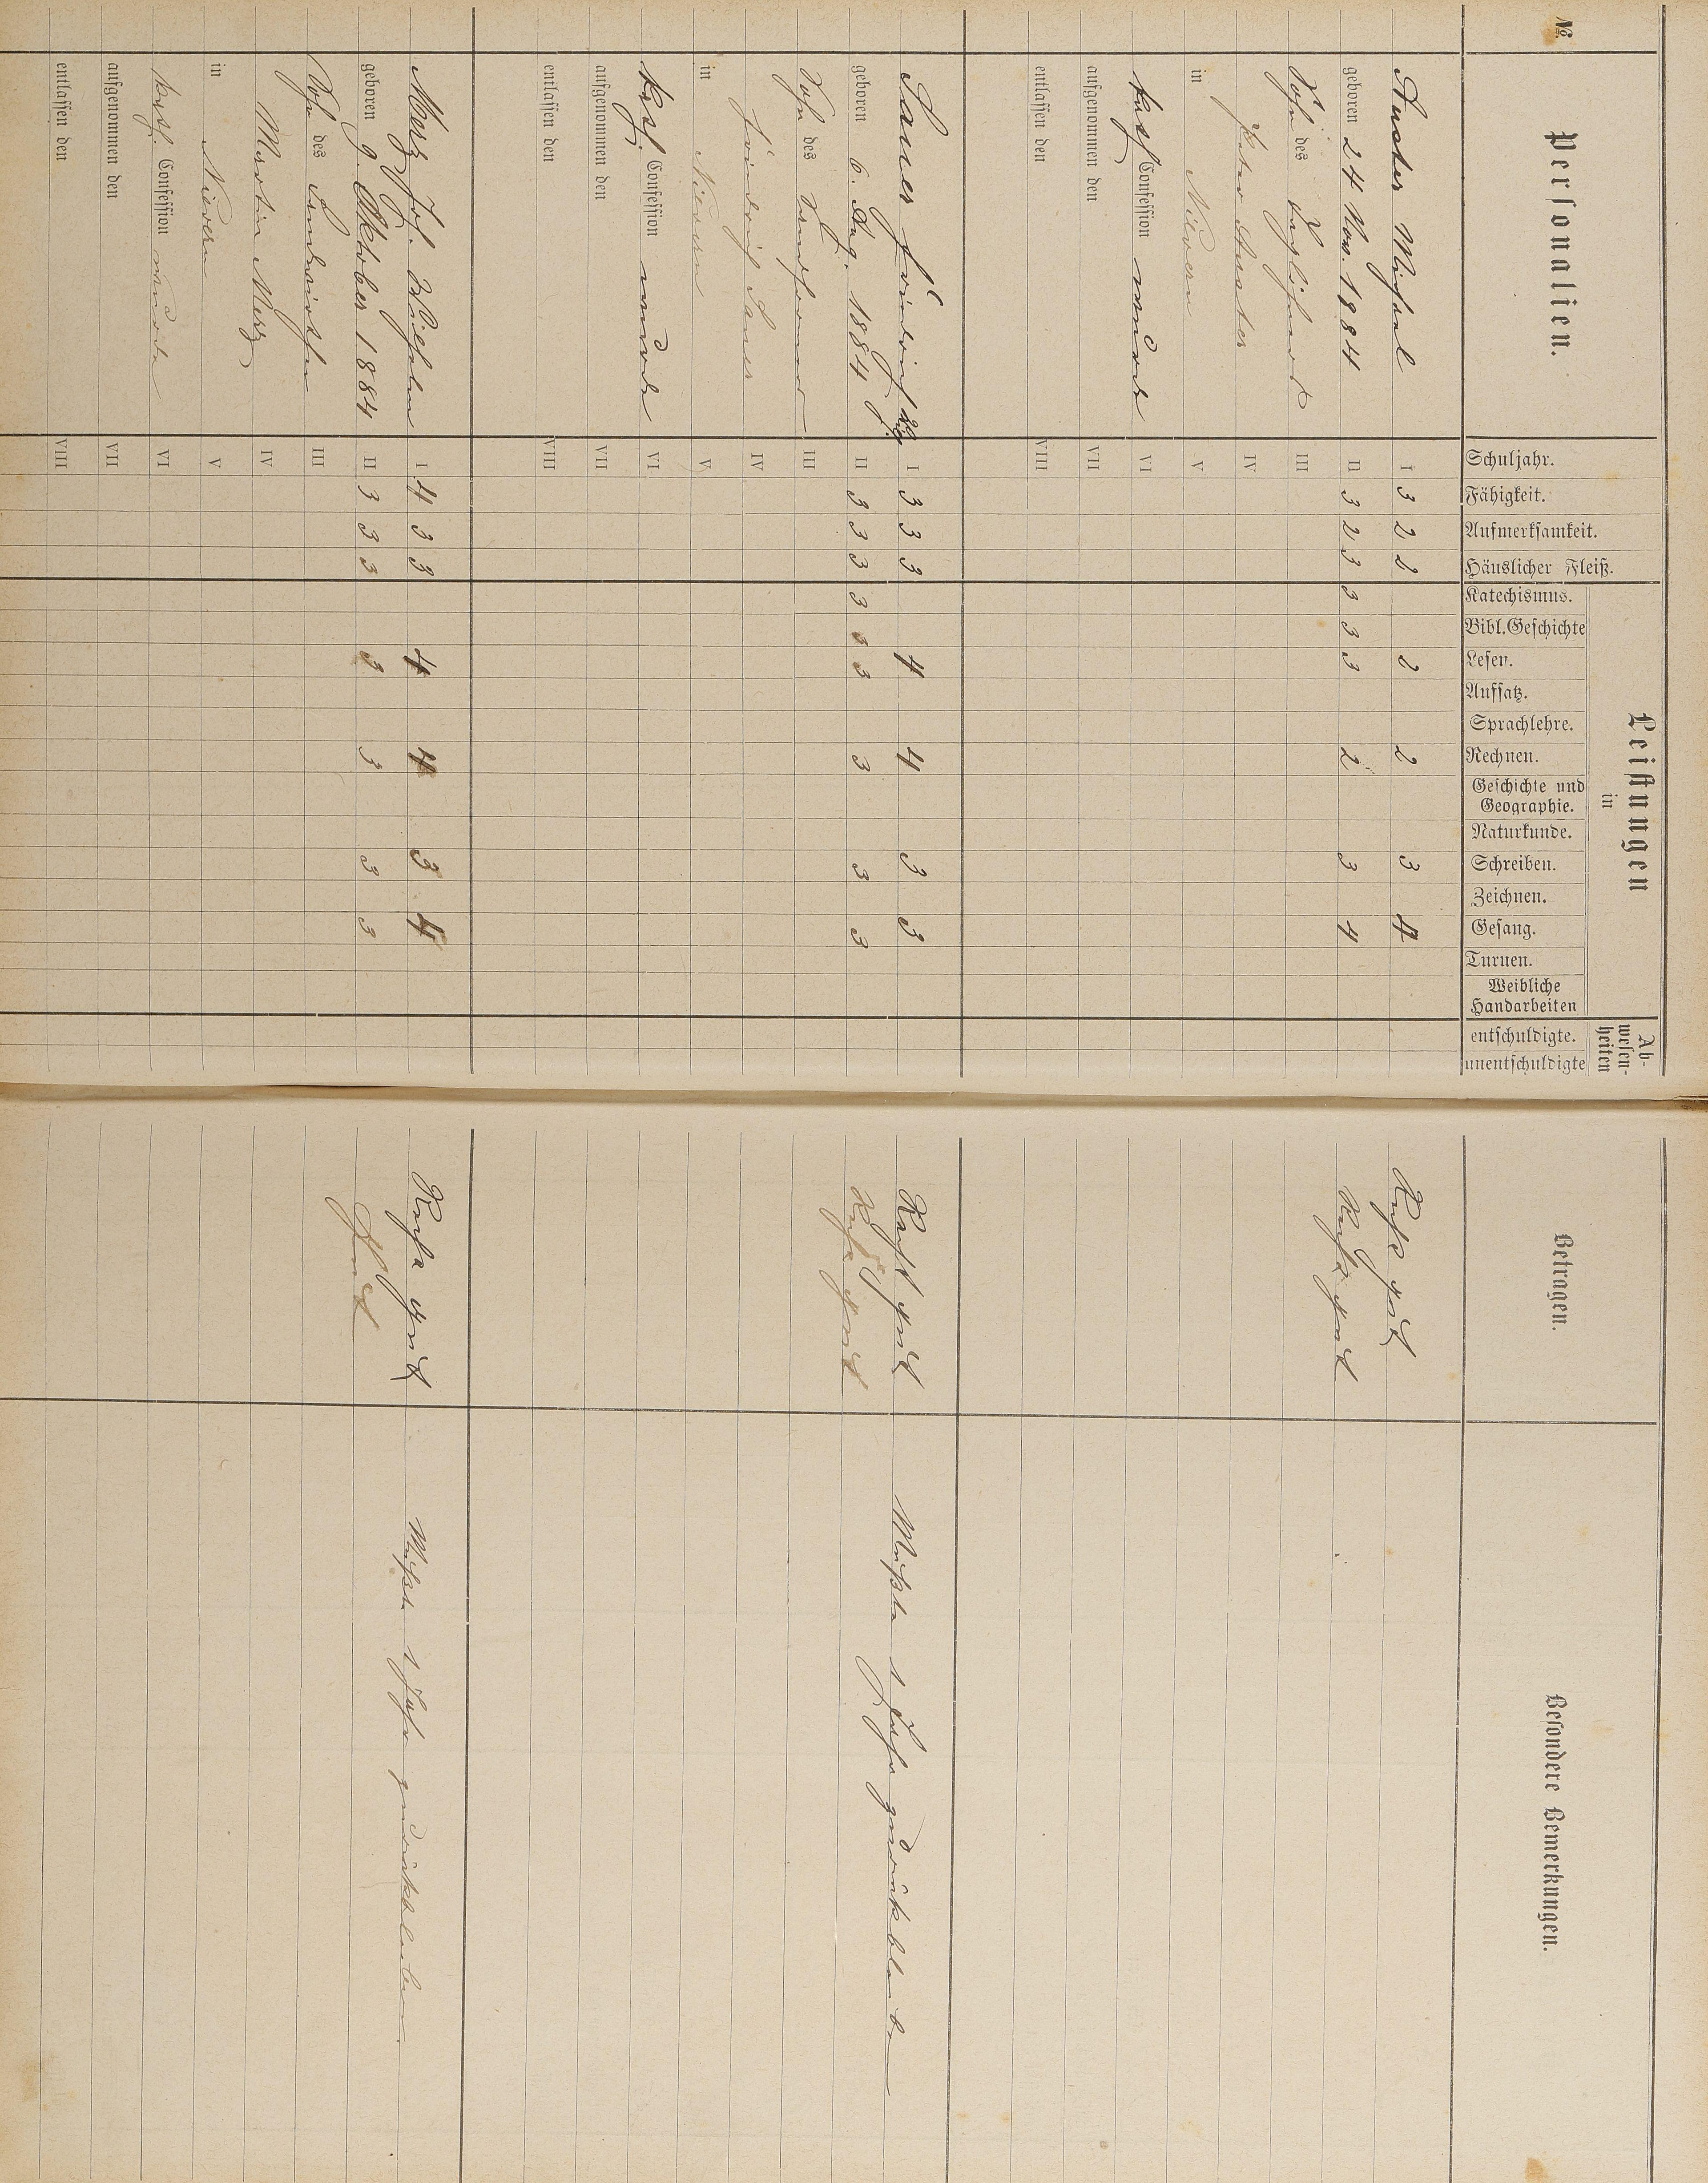 №.
Personalien.
Schuljahr.
Fähigkeit.
Aufmerksamkeit.
Häuslicher Fleiß.
Leistungen
in
Katechismus.
Bibl. Geschichte
Lesen.
Aufsatz.
Sprachlehre.
Rechnen.
Geschichte und
Geographie.
Naturkunde.
Schreiben.
Zeichnen.
Gesang.
Turnen.
Weibliche
Handarbeiten
Ab-
wesen-
heiten
entschuldigte.
unentschuldigte
Betragen.
Besondere Bemerkungen.
Michael I 3 2 2 2 2 3 4 Recht gut
geboren 24 Nov. 1884 II 3 2 3 3 3 3 2 3 4 Recht gut
Sohn des III
Peter IV
in Nievern V
kath. Confession wurde VI
aufgenommen den VII
entlassen den VIII
Sauer Friedrich I 3 3 3 4 4 3 3 Recht gut Mußte 1 Jahr zurückbleiben
geboren 6. Aug. 1884 II 3 3 3 3 3 3 3 3 3 Recht gut
Sohn des III
Friedrich Sauer IV
in Nievern V
kath. Confession wurde VI
aufgenommen den VII
entlassen den VIII
Merz Jos. Wilhelm I 4 3 3 4 4 3 4 Recht gut Mußte 1 Jahr zurückbleiben
geboren 9. Oktober 1884 II 3 3 3 3 3 3 3 Gut
Sohn des Landwirthen III
Martin Merz IV
in Nievern V
kath. Confession wurde VI
aufgenommen den VII
entlassen den VIII